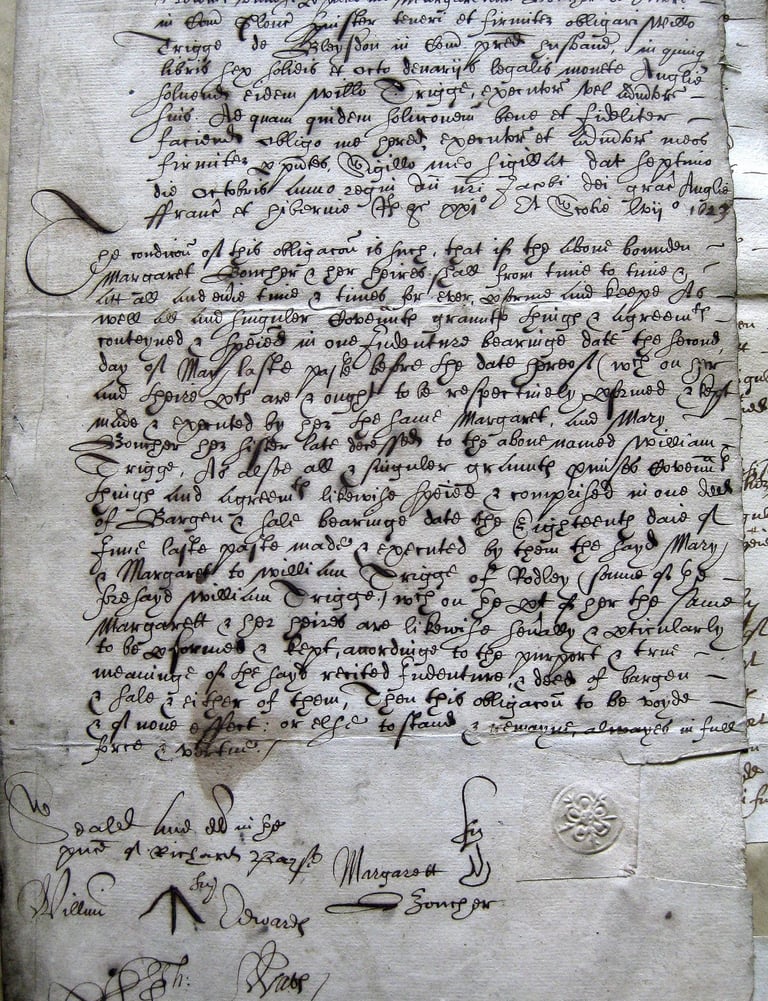 in Com Glouc spinster teneri et firmiter obligari Willo
Trigge de Bleysdon in Com pred husband, in quinq
libris sex solidis et octo denariis legalis monete Anglie
solvend eidem Willo Trigge, executor vel
suis. Ad quam quidem soluconem bene et fideliter
faciend obligo me hered, executor et meos
firmiter p pntes, Sigillo meo sigillat dat septimo
die Octobris Anno regni dni nri Jacobi dei grac Anglie
ffranc et hibernie xxi° Et Scotie lvij° 1623
The condicon of this obligacon is such, that if the above bounden
Margaret Boucher & her heires shall from time to time &
att all and evie time & times for ever, pforme and keepe As
well all and singuler Covennts graunts things & agreemts
conteyned & specied in one Indenture bearinge date the second
day of May laste paste before the date hereof (wch on her
and theire pts are & ought to be respectively pformed & kept
made & executed by her the same Margaret, and Mary
Boucher her sister late decessed to the above named William
Trigge, As alsoe all & singuler graunts pmises Covennts
things and agreemts likewise specied & comprised in one deed
of Bargen & sale bearinge date the Eighteenth daie of
June laste paste made & executed by them the sayd Mary
& Margaret to William Trigge of Rodley (sonne of the
foresayd William Trigge,) wch on the pt of her the same
Margarett & her heires are likewise sevally & pticularly
to be pformed & kept, accordinge to the purport & true
meaninge of the sayd recited Indenture, & deed of bargen
& sale & either of them, Then this obligacon to be voyde
& of none effect: or else to stand & remayne, alwayes in full
force & vertue.
Sealed and dd in the
psnce of Richard
Margarett
Boucher
Willm
Edwards